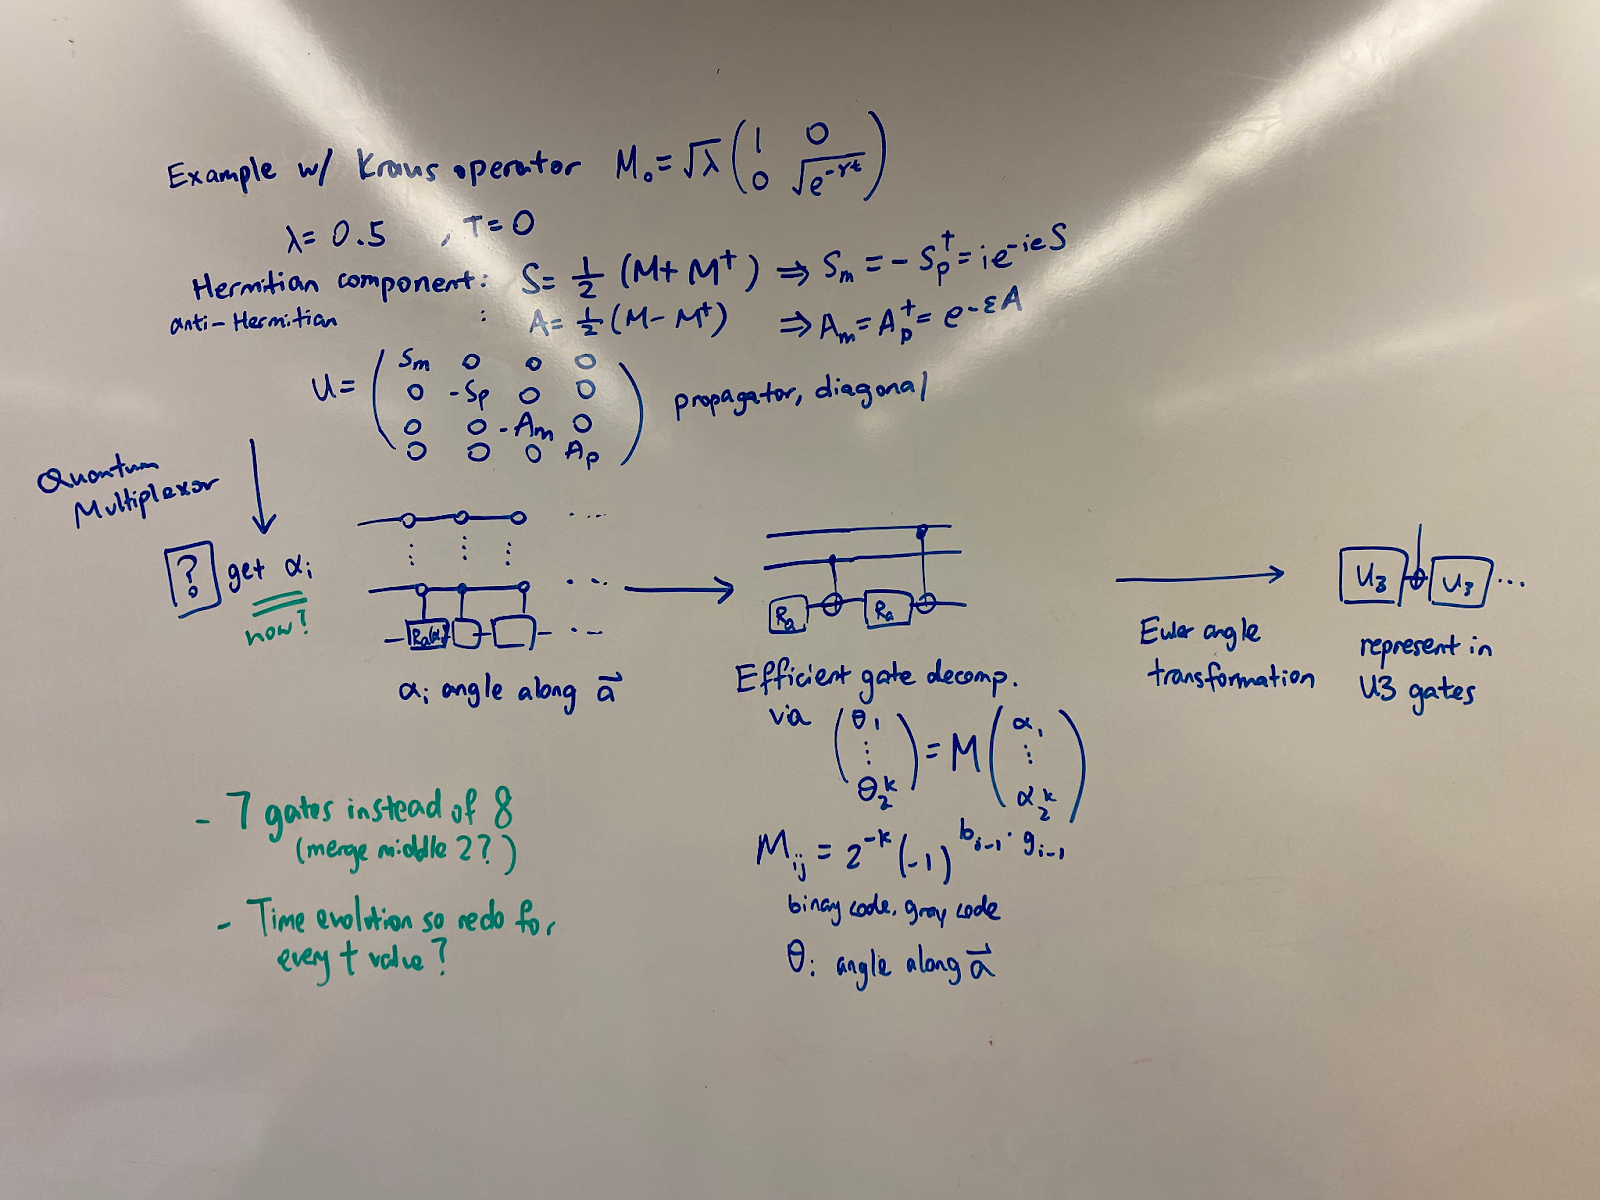 Example w/ Kraus operator M₀ = √λ ( 1 0 ; 0 √e^{-γt} )
λ = 0.5 , T = 0
Hermitian component: S = 1/2 (M + M†) ⇒ Sₘ = - Sₚ† = ie^{-iεS}
anti-Hermitian : A = 1/2 (M - M†) ⇒ Aₘ = Aₚ† = e^{-εA}
U = ( Sₘ 0 0 0
0 -Sₚ 0 0
0 0 -Aₘ 0
0 0 0 Aₚ ) propagator, diagonal
Quantum
Multiplexor
? get αᵢ
how?
Rₐ(αᵢ)
αᵢ angle along a⃗
Rₐ Rₐ
Efficient gate decomp.
via ( θ₁ ⋮ θ₂ᵏ ) = M ( α₁ ⋮ α₂ᵏ )
Mᵢⱼ = 2^{-k} (-1)^{b_{i-1} · g_{i-1}}
binary code, gray code
θ: angle along a⃗
Euler angle
transformation
U₃ U₃ ...
represent in
U3 gates
- 7 gates instead of 8
(merge middle 2?)
- Time evolution so redo for
every t value?